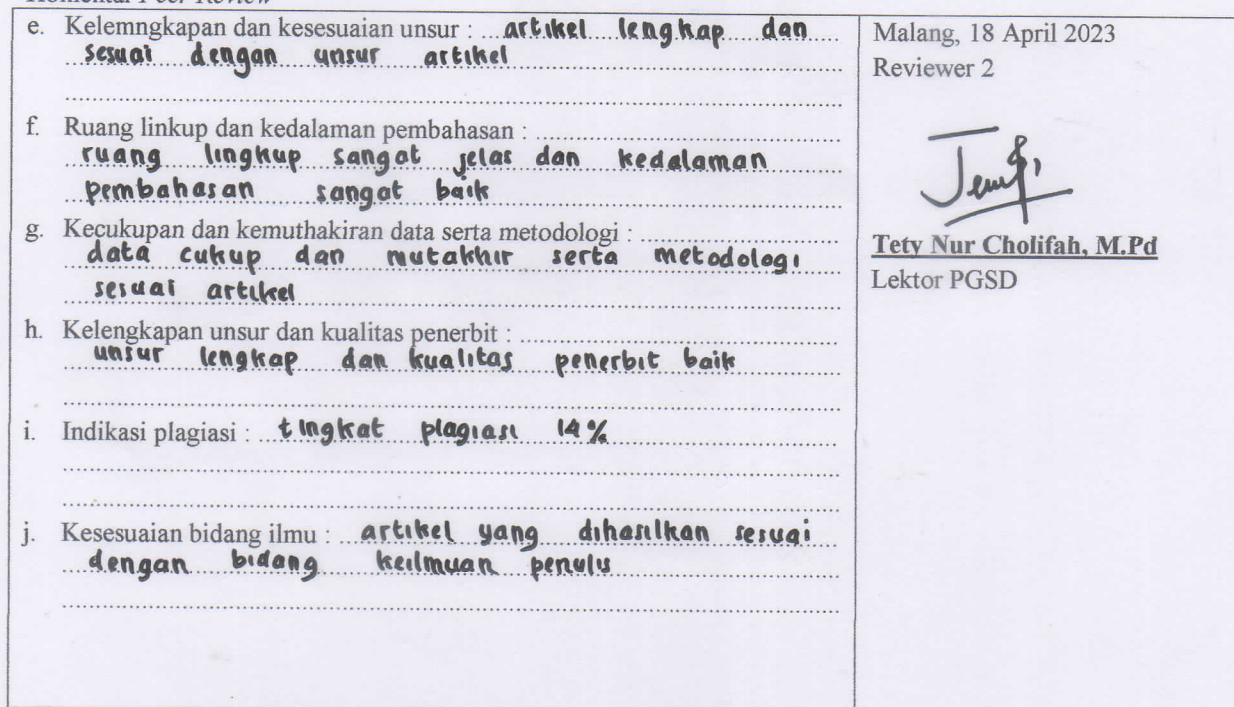 Komentar Peer Review
e. Kelemngkapan dan kesesuaian unsur : artikel lengkap dan
sesuai dengan unsur artikel
f. Ruang linkup dan kedalaman pembahasan :
ruang lingkup sangat jelas dan kedalaman
pembahasan sangat baik
g. Kecukupan dan kemuthakiran data serta metodologi :
data cukup dan mutakhir serta metodologi
sesuai artikel
h. Kelengkapan unsur dan kualitas penerbit :
unsur lengkap dan kualitas penerbit baik
i. Indikasi plagiasi : tingkat plagiasi 14%
j. Kesesuaian bidang ilmu : artikel yang dihasilkan sesuai
dengan bidang keilmuan penulis
Malang, 18 April 2023
Reviewer 2
Tety Nur Cholifah, M.Pd
Lektor PGSD